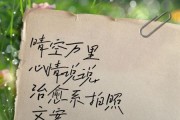 晴空万里
心情说说,
治愈系拍照
文案